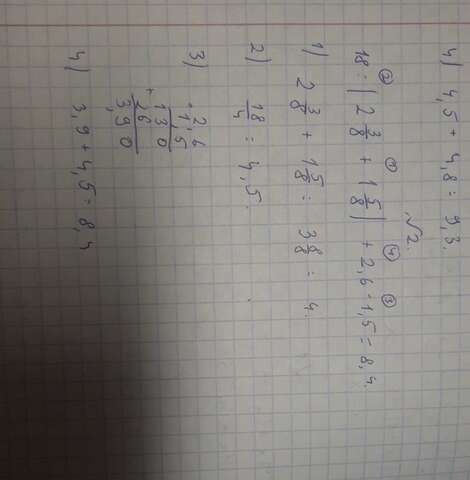 4) 4,5 + 4,8 = 9,3.
№2.
② ① ④ ③
18 : (2 3/8 + 1 5/8) + 2,6 · 1,5 = 8,4.
1) 2 3/8 + 1 5/8 = 3 8/8 = 4.
2) 18/4 = 4,5.
3) 2,6
· 1,5
130
+ 26
3,90
4) 3,9 + 4,5 = 8,4